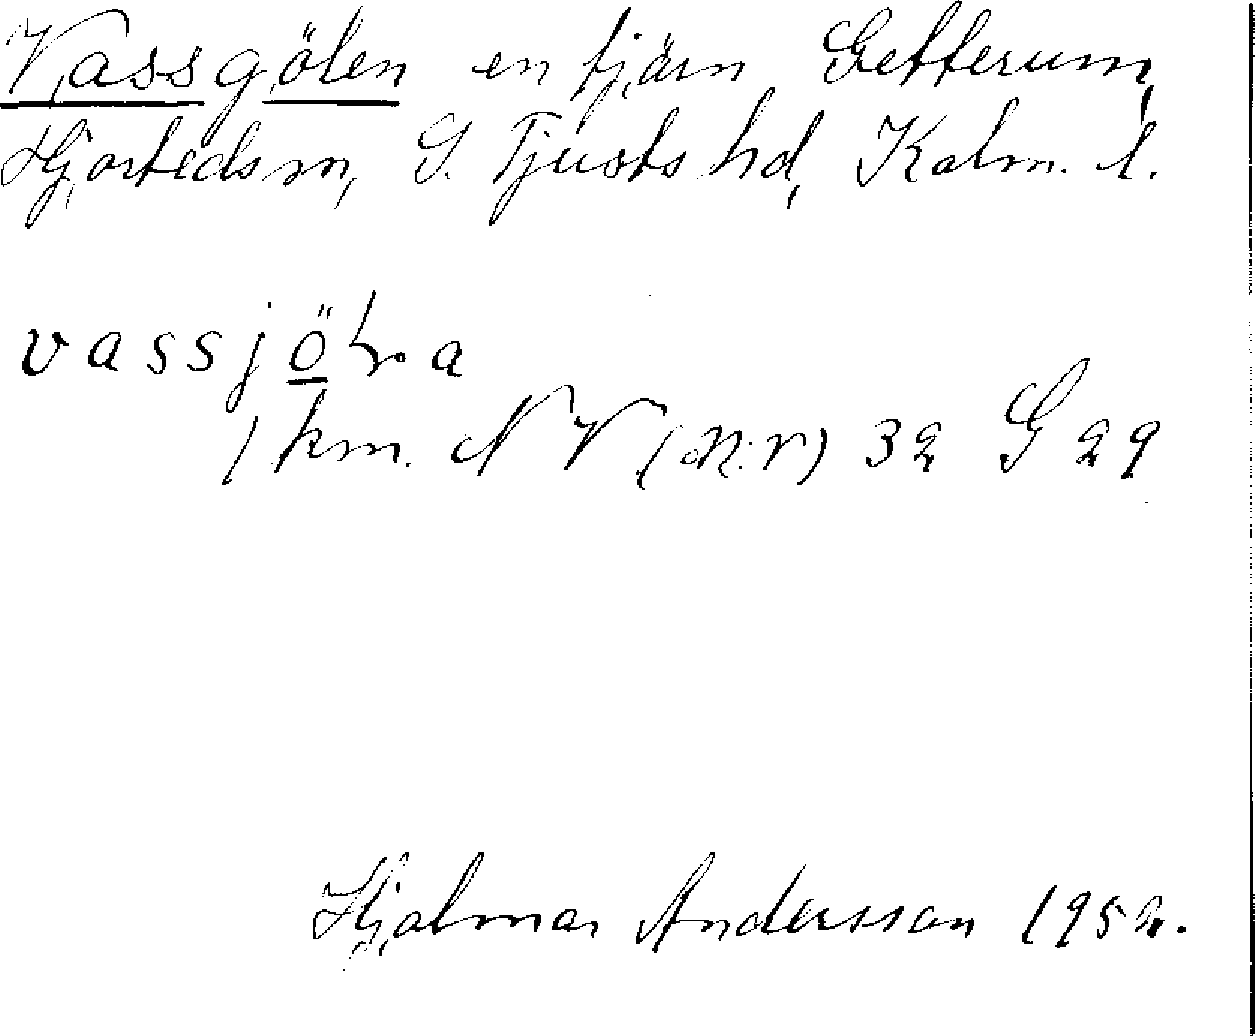 Vassgölen en tjärn Getterum,
Hjorteds sn, S. Tjusts hd, Kalm. l.
vassjöɽa
1 km. NV (N:V) 32 G 29
Hjalmar Andersson 1952.